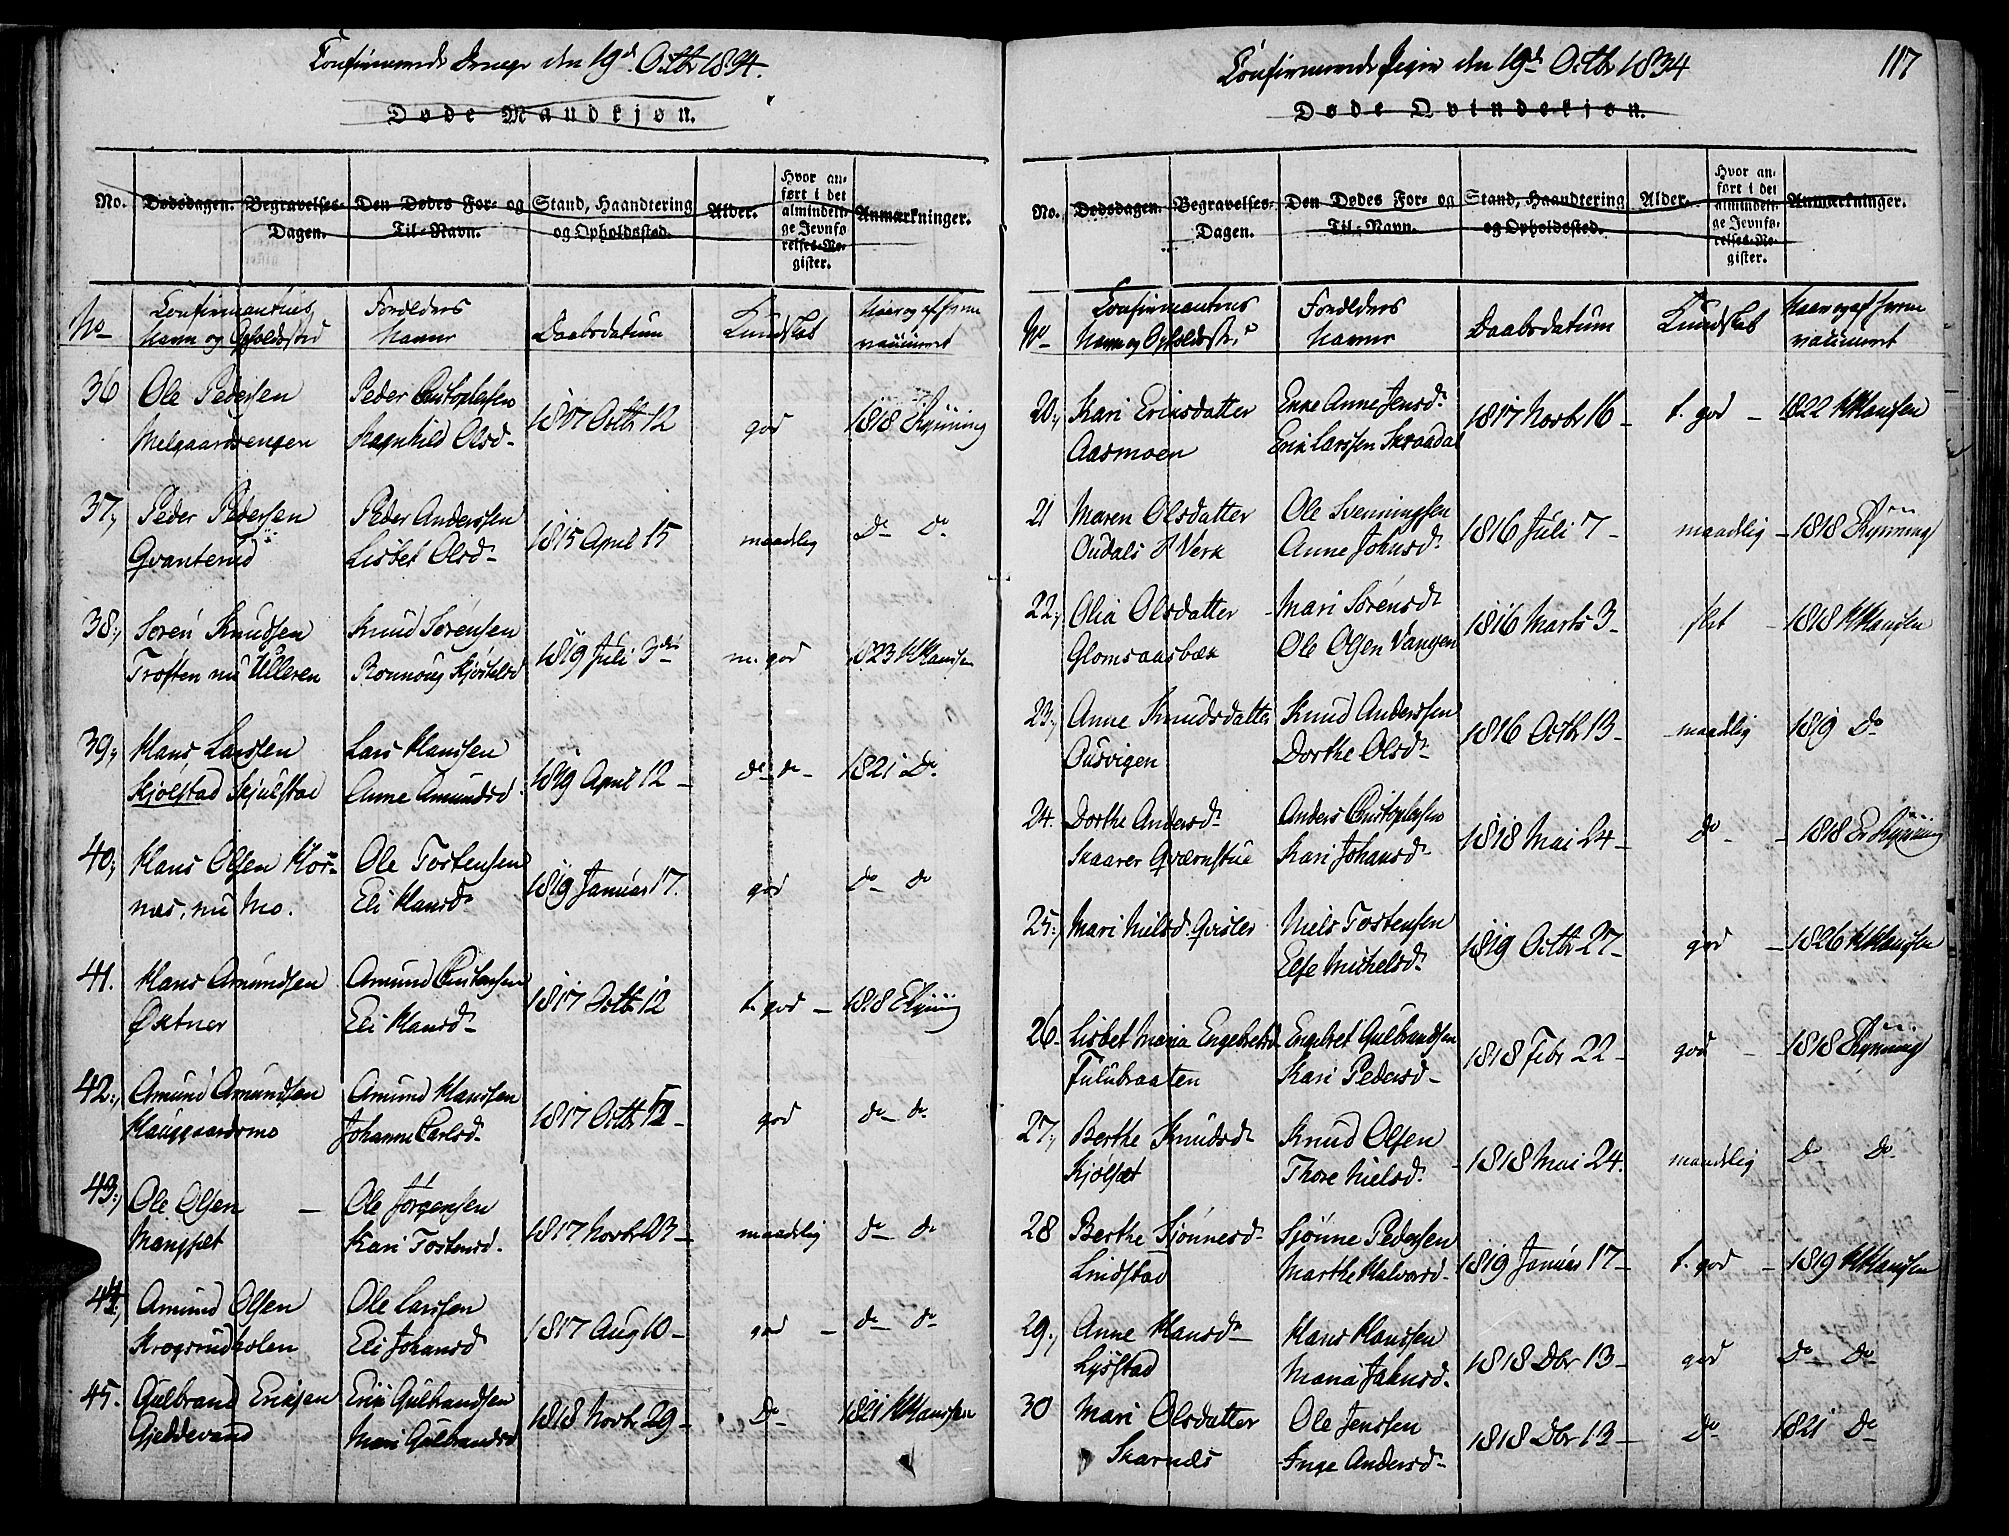 Confirmerede Drenge den 19de Octbr 1834.
Døde Mandkjøn.
No. Dødsdagen. Begravelses-Dagen. Den Dødes For- og Til-Navn. Stand, Haandtering og Opholdssted. Alder. Hvor anført i det almindelige Jevnførelses-Register. Anmærkninger.
No Confirmanternes Navn og Opholdssted Forældres Navne Daabsdatum Kundskab Naar og af hvem vaccineret
36 Ole Pedersen Peder Christophersen 1817 Octbr 12 god 1818 Rynning
Melgaardsengen Ragnhild Olsd.
37, Peder Pedersen Peder Anderssen 1815 April 15 maadelig Do Do
Qvanterud Lisbet Olsd.
38, Sören Knudsen Knud Sörensen 1819 Juli 3die m. god 1823 K Hanssen
Troften nu Ulleren Rönnoug Kjöstelsd
39, Hans Larssen Lars Hanssen 1819 April 12 do do 1821 Do
Skjölstad Skjulstad Anne Amundsd.
40, Hans Olsen Hor- Ole Tostensen 1819 Januar 17. god do do
nes, nu Mo. Eli Hansd.
41. Hans Amundsen Amund Christensen 1817 Octb. 12 t. god 1818 E Rynning
Östner Eli Hansd.
42, Amund Amundsen Amund Hanssen 1817 Octbr 12 god do do
Hauggaardsmo Johanne Carlsd.
43, Ole Olsen Ole Jörgensen 1817 Novbr 23 maadelig do do
Mangset Kari Tostensd.
44, Amund Olsen Ole Larssen 1817 Aug 10 god do do
Krogsrudholen Eli Johansd
45. Gulbrand Eriksen Erik Gulbrandsen 1818 Novbr 29 Do 1821 K Hanssen
Gjeddevand Mari Gulbrandsd
Confirmerede Piger den 19de Octbr 1834 117
Døde Qvindekjøn.
No. Dødsdagen. Begravelses-Dagen. Den Dødes For- og Til-Navn. Stand, Haandtering og Opholdssted. Alder. Hvor anført i det almindelige Jevnførelses-Register. Anmærkninger.
No Confirmanternes Navn og Opholdsted Forældres Navne Daabsdatum Kundskab Naar og af hvem vaccineret
20, Kari Eriksdatter Enke Anne Jensd. 1817 Novbr 16 t. god 1822 K Hanssen
Aasmoen Erik Larssen Skraadal
21 Maren Olsdatter Ole Svenningsen 1816 Juli 7 maadelig 1818 E Rynning
Oudals Verk Anne Johnsd.
22, Olia Olsdatter Mari Sörensd. 1816 Marts 3 slet 1818 K Hanssen
Glomsaasbæk Ole Olsen Vangen
23, Anne Knudsdatter Knud Anderssen 1816 Octbr 13 maadelig 1819 Do
Ousvigen Dorthe Olsd.
24. Dorthe Andersd. Anders Christophersen 1818 Mai 24 Do 1818 E Rynning
Skaarer Qværnstue Kari Johansd.
25, Mari Nielsd. Qvisler Niels Tostensen 1819 Octbr 27 god 1826 K Hanssen
Else Michelsd.
26 Lisbet Maria Engebretsd Engebret Gulbrandsen 1818 Febr 22 god 1818 E Rynning
Fulubraaten Kari Pedersd.
27, Berthe Knudsd. Knud Olsen 1818 Mai 24. maadelig Do Do
Kjölset Thore Nielsd.
28 Berthe Sjönnesd. Sjönne Pedersen 1819 Januar 17 t. god 1819 K Hanssen
Lindstad Marthe Halvorsd.
29, Anne Hansd. Hans Hanssen 1818 Dbr 13 god Do Do
Lystad Maria Johnsd.
30 Mari Olsdatter Ole Jenssen 1818 Dbr 13 Do 1821 Do
Skarnæs Inge Andersd.